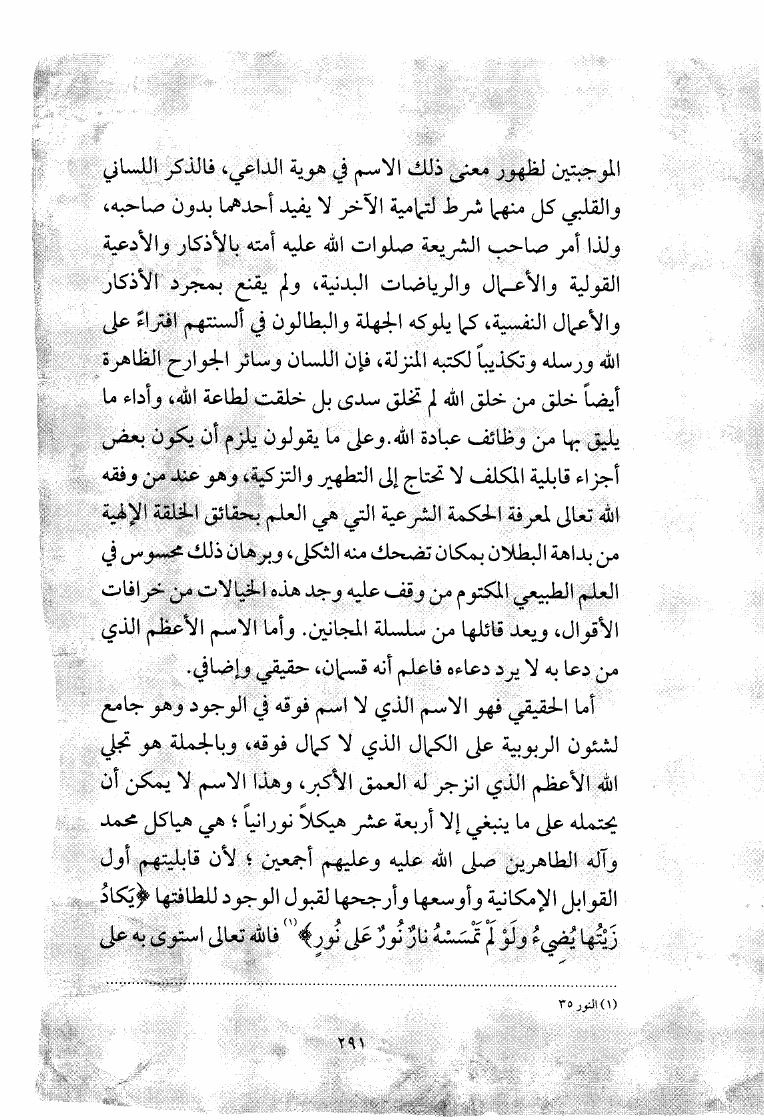 الموجبتين لظهور معنى ذلك الاسم في هوية الداعي، فالذكر اللساني
والقلبي كل منهما شرط لتمامية الآخر لا يفيد أحدهما بدون صاحبه،
ولذا أمر صاحب الشريعة صلوات الله عليه أمته بالأذكار والأدعية
القولية والأعـمال والرياضات البدنية، ولم يقنع بمجرد الأذكار
والأعمال النفسية، كما يلوكه الجهلة والبطالون في ألسنتهم افتراءً على
الله ورسله وتكذيباً لكتبه المنزلة، فإن اللسان وسائر الجوارح الظاهرة
أيضاً خلق من خلق الله لم تخلق سدى بل خلقت لطاعة الله، وأداء ما
يليق بها من وظائف عبادة الله.وعلى ما يقولون يلزم أن يكون بعض
أجزاء قابلية المكلف لا تحتاج إلى التطهير والتزكية، وهو عند من وفقه
الله تعالى لمعرفة الحكمة الشرعية التي هي العلم بحقائق الخلقة الإلهية
من بداهة البطلان بمكان تضحك منه الثكلى، وبرهان ذلك محسوس في
العلم الطبيعي المكتوم من وقف عليه وجد هذه الخيالات من خرافات
الأقوال، ويعد قائلها من سلسلة المجانين. وأما الاسم الأعظم الذي
من دعا به لا يرد دعاءه فاعلم أنه قسمان، حقيقي وإضافي.
أما الحقيقي فهو الاسم الذي لا اسم فوقه في الوجود وهو جامع
لشئون الربوبية على الكمال الذي لا كمال فوقه، وبالجملة هو تجلي
الله الأعظم الذي انزجر له العمق الأكبر، وهذا الاسم لا يمكن أن
يحتمله على ما ينبغي إلا أربعة عشر هيكلاً نورانياً ؛ هي هياكل محمد
وآله الطاهرين صلى الله عليه وعليهم أجمعين ؛ لأن قابليتهم أول
القوابل الإمكانية وأوسعها وأرجحها لقبول الوجود للطافتها ﴿يَكادُ
زَيْتُها يُضِيءُ ولَوْ لَمْ تَمْسَسْهُ نارٌ نُورٌ عَلى نُورٍ﴾(١) فالله تعالى استوى به على
(١) النور ٣٥
٢٩١